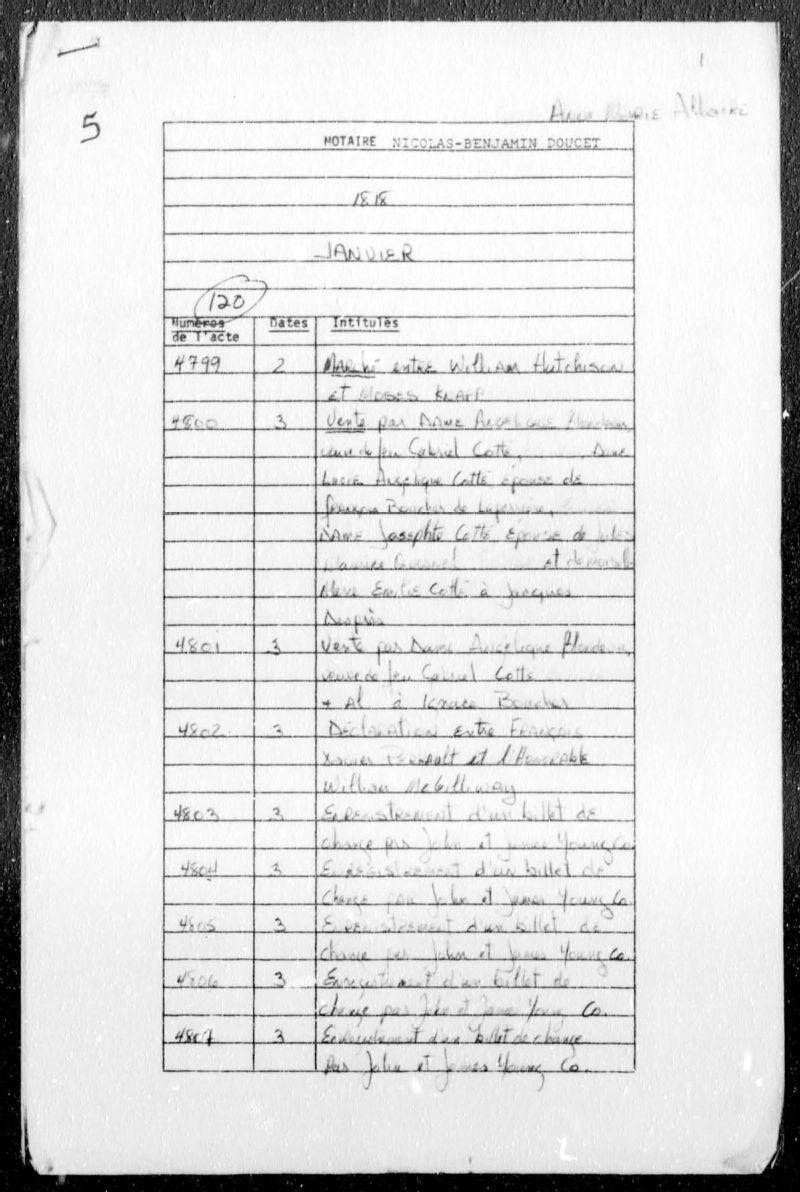 1
5
Marie Allaire
NOTAIRE NICOLAS-BENJAMIN DOUCET
1818
JANVIER
120
Numéros de l'acte Dates Intitulés
4799 2 Marché entre William Hutchison
et Moses Knapp
4800 3 Vente par Dame Angélique Blondeau,
veuve de feu Gabriel Cotté, Dame
Lucie Angélique Cotté épouse de
François Boucher de
Dame Josephte Cotté, épouse de Jules
Maurice Quesnel et demoiselle
Marie Emilie Cotté à Jacques
Després
4801 3 Vente par Dame Angélique Blondeau,
veuve de feu Gabriel Cotté
+ Al à Ignace Boucher
4802 3 Déclaration entre François
Xavier Perrault et l'Honorable
William McGilliwray
4803 3 Enregistrement d'un billet de
change par John et James Young Co.
4804 3 Enregistrement d'un billet de
change par John et James Young Co.
4805 3 Enregistrement d'un billet de
change par John et James Young Co.
4806 3 Enregistrement d'un billet de
change par John et James Young Co.
4807 3 Enregistrement d'un billet de change
par John et James Young Co.